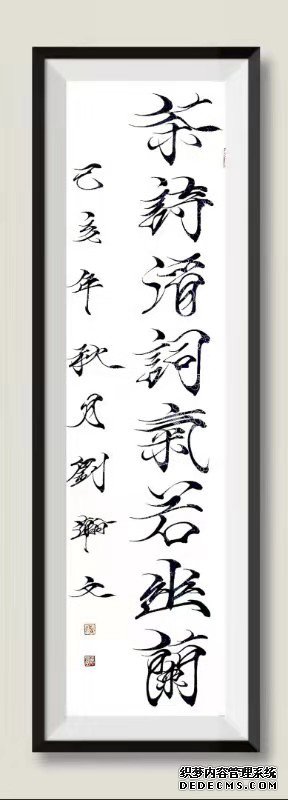 茶詩清詞氣若幽蘭
己亥年秋月劉瀚文
织梦内容管理系统
DEDECMS.COM